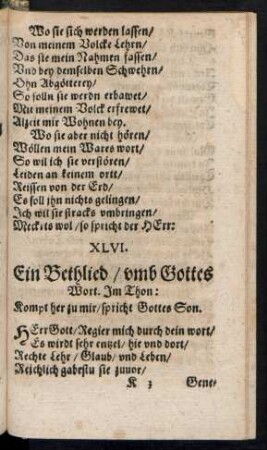 Wo sie sich werden lassen/
Von meinem Volcke Lehrn/
Das sie mein Nahmen fassen/
Vnd bey demselben Schwehrn/
Ohn Abgötterey/
So solln sie werdn erbawet/
Mit meinem Volck erfrewet/
Alzeit mir Wohnen bey.
Wo sie aber nicht hören/
Wöllen mein Wares wort/
So wil ich sie verstören/
Leiden an keinem ortt/
Reissen von der Erd/
Es soll ihn nichts gelingen/
Ich wil sie stracks vmbringen/
Meckets wol/ so spricht der HErr:
XLVI.
Ein Bethlied / vmb Gottes
Wort. Im Thon:
Kompt her zu mir/ spricht Gottes Son.
HErr Gott/ Regier mich durch dein wort/
Es wirdt sehr entzel/ hie vnd dort/
Rechte Lehr/ Glaub/ vnd Leben/
Reichlich gabestu sie zuuor/
K 3 Gene-